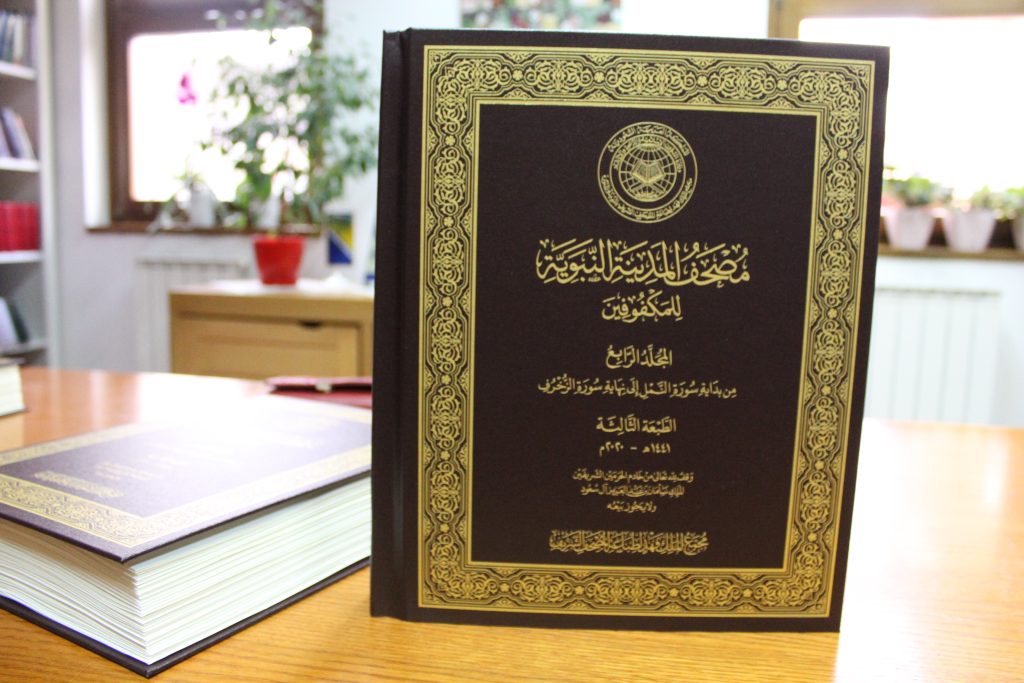 مُصْحَفُ المَدِينَةِ النَّبَوِيَّةِ
لِلمَكْفُوفِينَ
المُجَلَّدُ الرَّابِعُ
مِن بِدَايَةِ سُورَةِ النَّمْلِ إِلَى نِهَايَةِ سُورَةِ الزُّخْرُفِ
الطَّبْعَة الثَّالِثَة
١٤٤١هـ - ٢٠٢٠م
وَقفٌ لِلّهِ تَعَالى مِنْ خَادِمِ الحَرَمَيْنِ الشَّرِيفَيْن
المَلِكِ سَلْمَان بْن عَبْد العَزِيز آل سُعُود
وَلَا يَجُوز بَيْعُه
مُجَمَّعُ المَلِكِ فَهْدٍ لِطِبَاعَةِ المُصْحَفِ الشَّرِيفِ